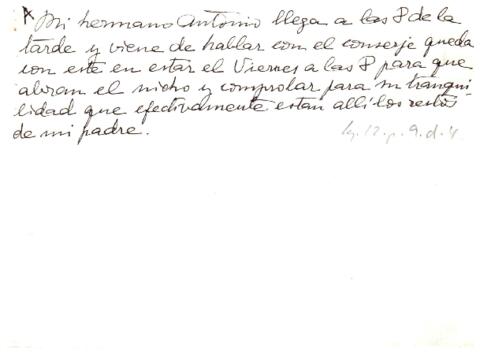 A Mi hermano Antonio llega a las 8 de la
tarde y viene de hablar con el conserje queda
con este en estar el Viernes a las 8 para que
abran el nicho y comprobar para su tranqui-
lidad que efectivamente estan alli los restos
de mi padre.
lg. 12. p. 9. d. 4